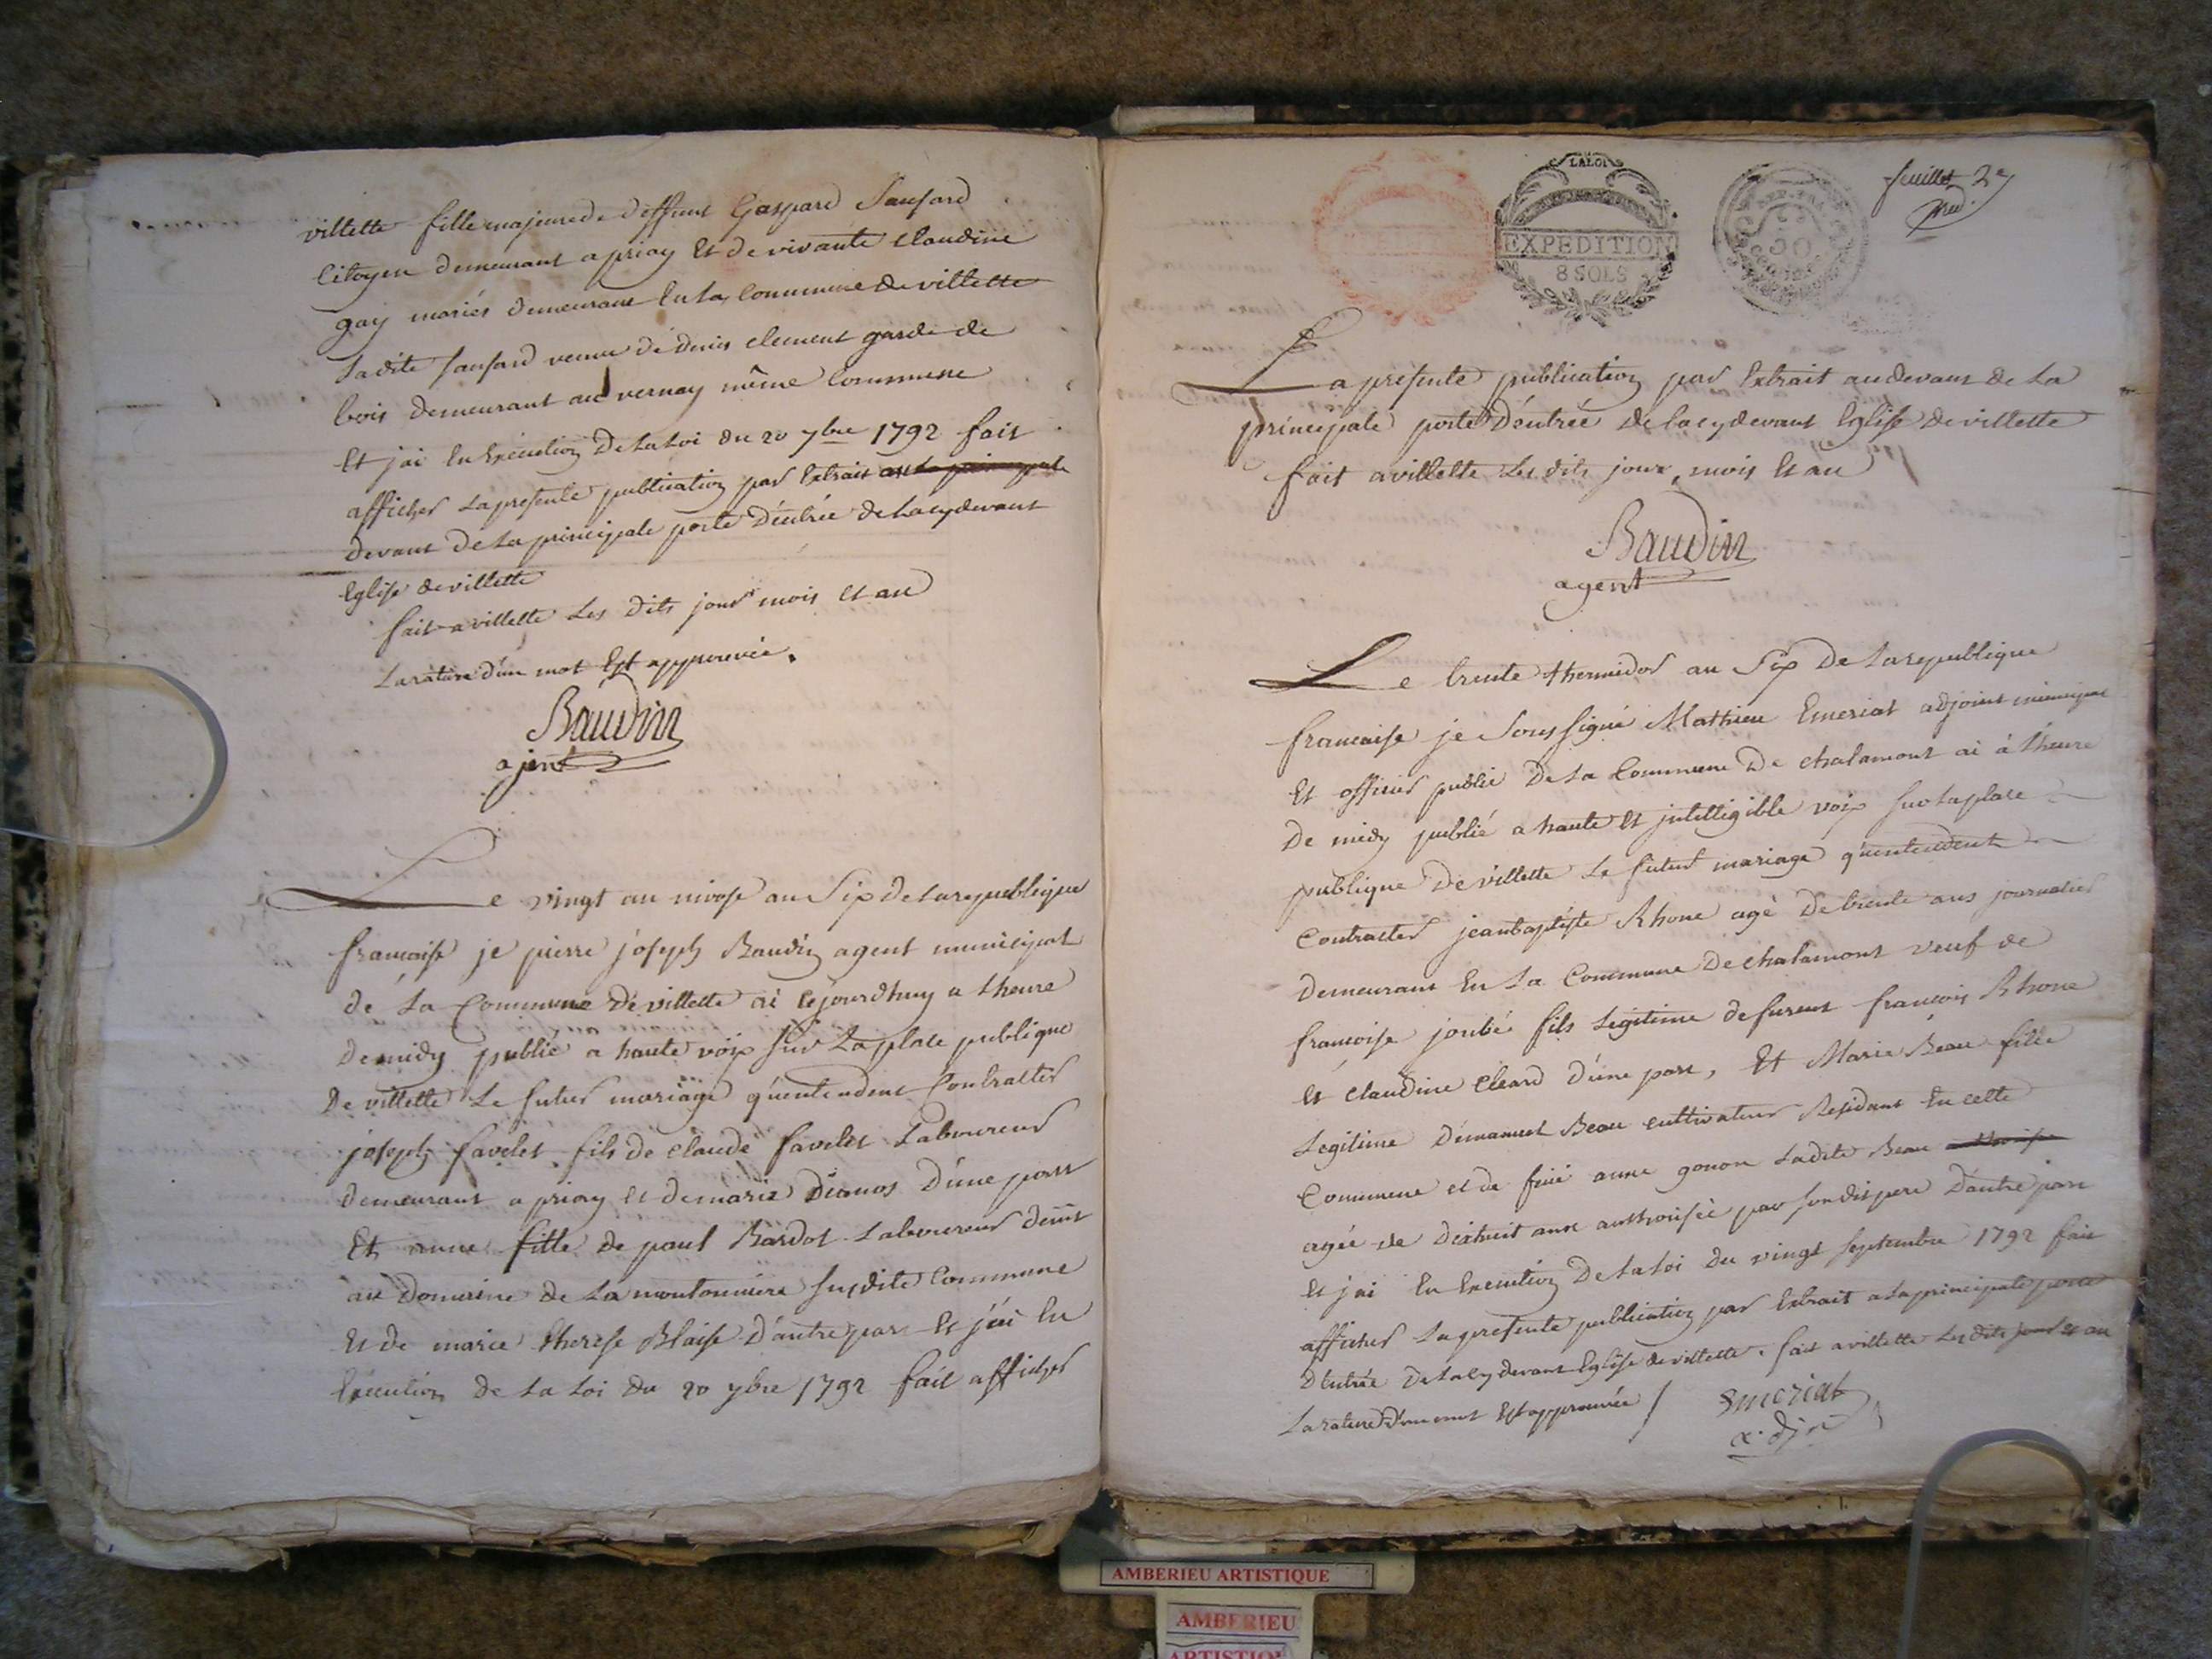 villette fille majeure de deffunt Gaspard Saufard
Citoyen demeurant a priay Et de vivante Claudine
gay mariés demeurant En La Commune de villette
Ladite saufard veuve de denis clement garde de
bois demeurant au vernay même Commune
Et jai En Execution De La Loi du 20 7bre 1792 fait
afficher La presente publication par Extrait
devant de La principale porte D'entrée de La cydevant
Eglise de villette
fait a villette Les dits jour mois et an
La rature d'un mot Est approuvée.
Baudin
ajent
Le vingt un nivose an Six de La republique
francaise je pierre joseph Baudin agent municipal
de La Commune de villette ai cejourdhuy a Lheure
De midy publié a haute voix sur La place publique
De villette Le futur mariage qu'entendent Contracter
joseph favelet fils de claude favelet Laboureur
demeurant a priay et de marie D'une part
Et anne fille de paul Bardot Laboureur demt
au Domaine de La moutonniere susdite Commune
Et de marie therese Blaise D'autre part Et j'ai En
Execution de La Loi du 20 7bre 1792 fait afficher
feuillet 2e
LA LOI
EXPEDITION
8 SOLS
50
La presente publication par Extrait au devant de La
principale porte D'entrée de La cydevant Eglise de villette
fait a villette Les dits jour, mois Et an
Baudin
agent
Le trente thermidor an Six De La republique
francaise je Soussigné Mathieu Emeriat adjoint municipal
Et officier public De La Commune De chalamont ai à Lheure
De midy publié a haute Et jntelligible voix sur La place
publique De villette Le futur mariage qu'entendent
Contracter jeanbaptiste Rhone agé De trente ans journalier
Demeurant En La Commune De chalamont veuf de
francoise joubé fils Legitime de furent francois Rhone
Et claudine cleard D'une part, Et Marie Beau fille
Legitime D'emanuel Beau cultivateur Residant En cette
Commune et de feüe anne gonon Ladite Beau
agée de dixhuit ans authorisée par son dit pere D'autre part
Et j'ai En Execution De La Loi du vingt septembre 1792 fait
afficher La presente publication par Extrait a La principale porte
D'Entrée De La cydevant Eglise de villette. fait a villette Les dits jour et an
La rature D'un mot Est approuvée /
Emeriat
AMBERIEU ARTISTIQUE
AMBERIEU
ARTISTIQUE